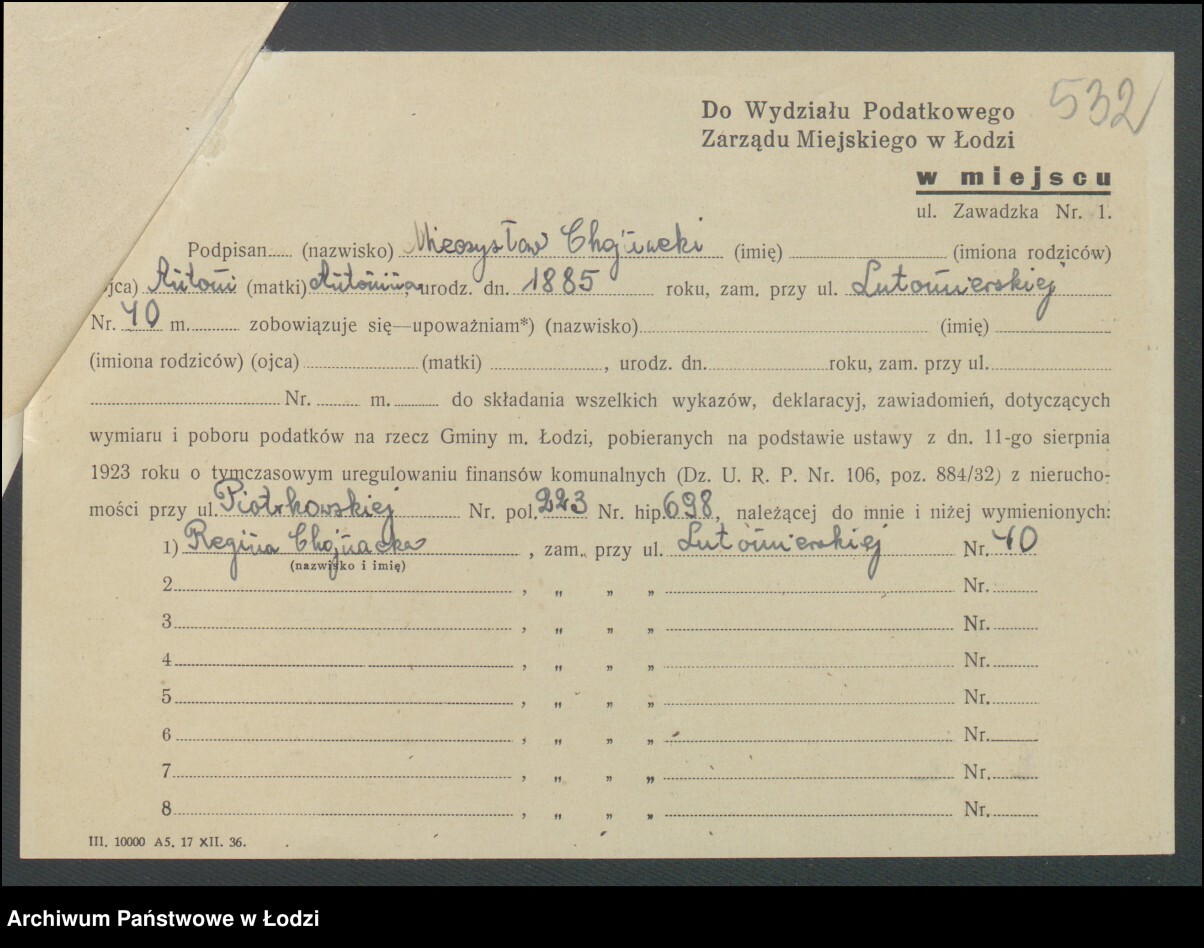 532
Do Wydziału Podatkowego
Zarządu Miejskiego w Łodzi
w miejscu
ul. Zawadzka Nr. 1.
Podpisan...... (nazwisko) Mieczysław Chojnacki (imię) (imiona rodziców)
jca) Antoni (matki) Antonina, urodz. dn. 1885 roku, zam. przy ul. Lutomierskiej
Nr. 40 m. zobowiązuje się—upoważniam*) (nazwisko) (imię)
(imiona rodziców) (ojca) (matki) , urodz. dn. roku, zam. przy ul.
Nr. m. do składania wszelkich wykazów, deklaracyj, zawiadomień, dotyczących
wymiaru i poboru podatków na rzecz Gminy m. Łodzi, pobieranych na podstawie ustawy z dn. 11-go sierpnia
1923 roku o tymczasowym uregulowaniu finansów komunalnych (Dz. U. R. P. Nr. 106, poz. 884/32) z nierucho-
mości przy ul. Piotrkowskiej Nr. pol. 223 Nr. hip. 698, należącej do mnie i niżej wymienionych:
1) Regina Chojnacka , zam. przy ul. Lutomierskiej Nr. 40
(nazwisko i imię)
2 , „ „ „ Nr.
3 , „ „ „ Nr.
4 , „ „ „ Nr.
5 , „ „ „ Nr.
6 , „ „ „ Nr.
7 , „ „ „ Nr.
8 , „ „ „ Nr.
III. 10000 A5. 17 XII. 36.
Archiwum Państwowe w Łodzi